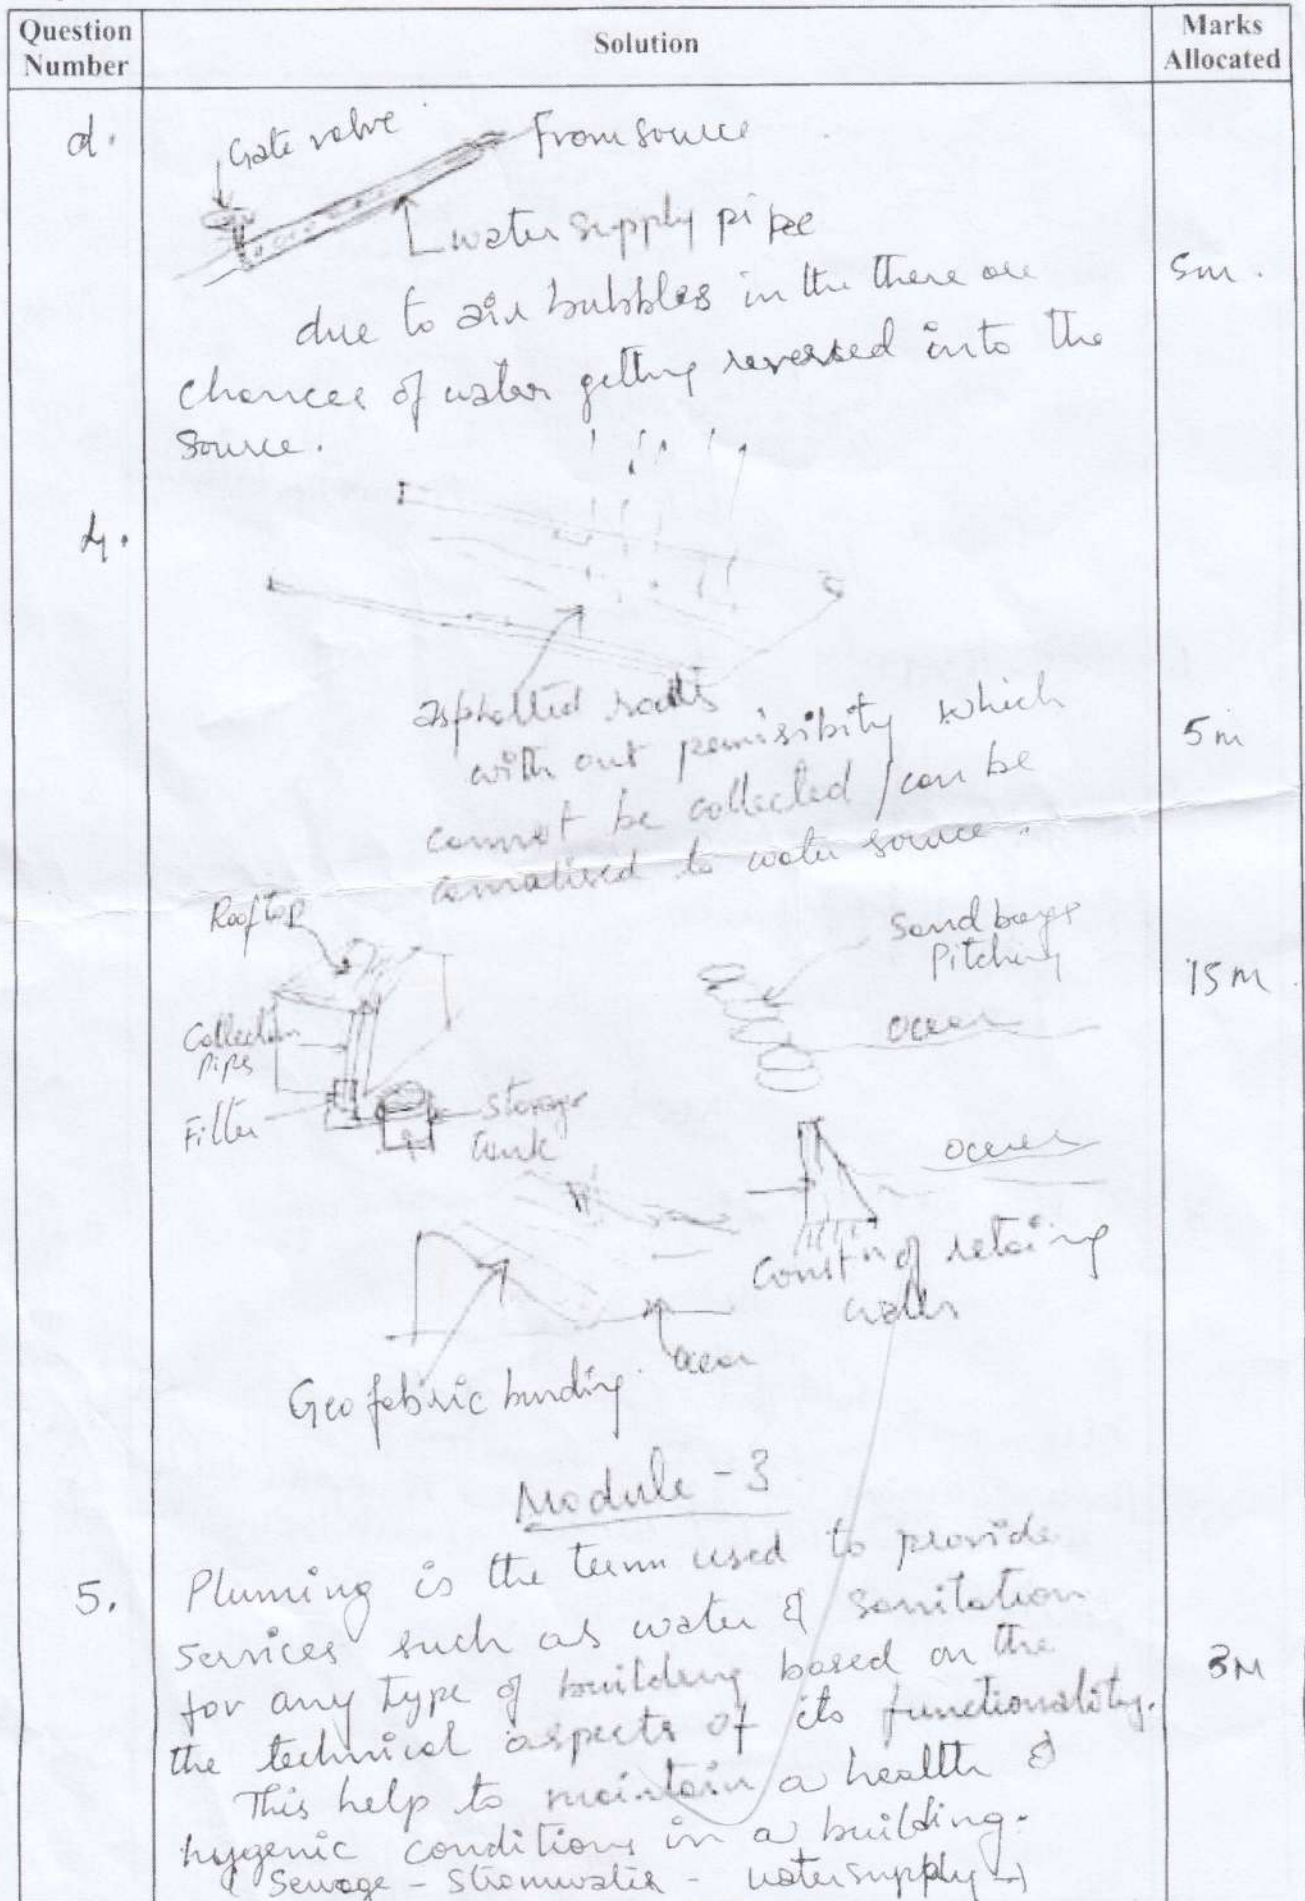 Question Number
Solution
Marks Allocated
d.
Gate valve
From source
water supply pipe
due to air bubbles in the there are
5m.
chances of water getting reversed into the
source.
4.
asphalted roads
with out permisibity which
5m
cannot be collected / can be
to water source.
Rooftop
Sand bags
Pitching
15m
Collection
pipes
ocean
Filter
storage
tank
ocean
Const n of retaing
walls
Geo fabric bunding.
ocean
Module - 3
5.
Pluming is the term used to provide
services such as water & sanitation
for any type of building based on the
3M
the technical aspects of its functionality.
This help to maintain a health &
hygenic conditions in a building.
(Sewage - Stromwater - watersupply →)